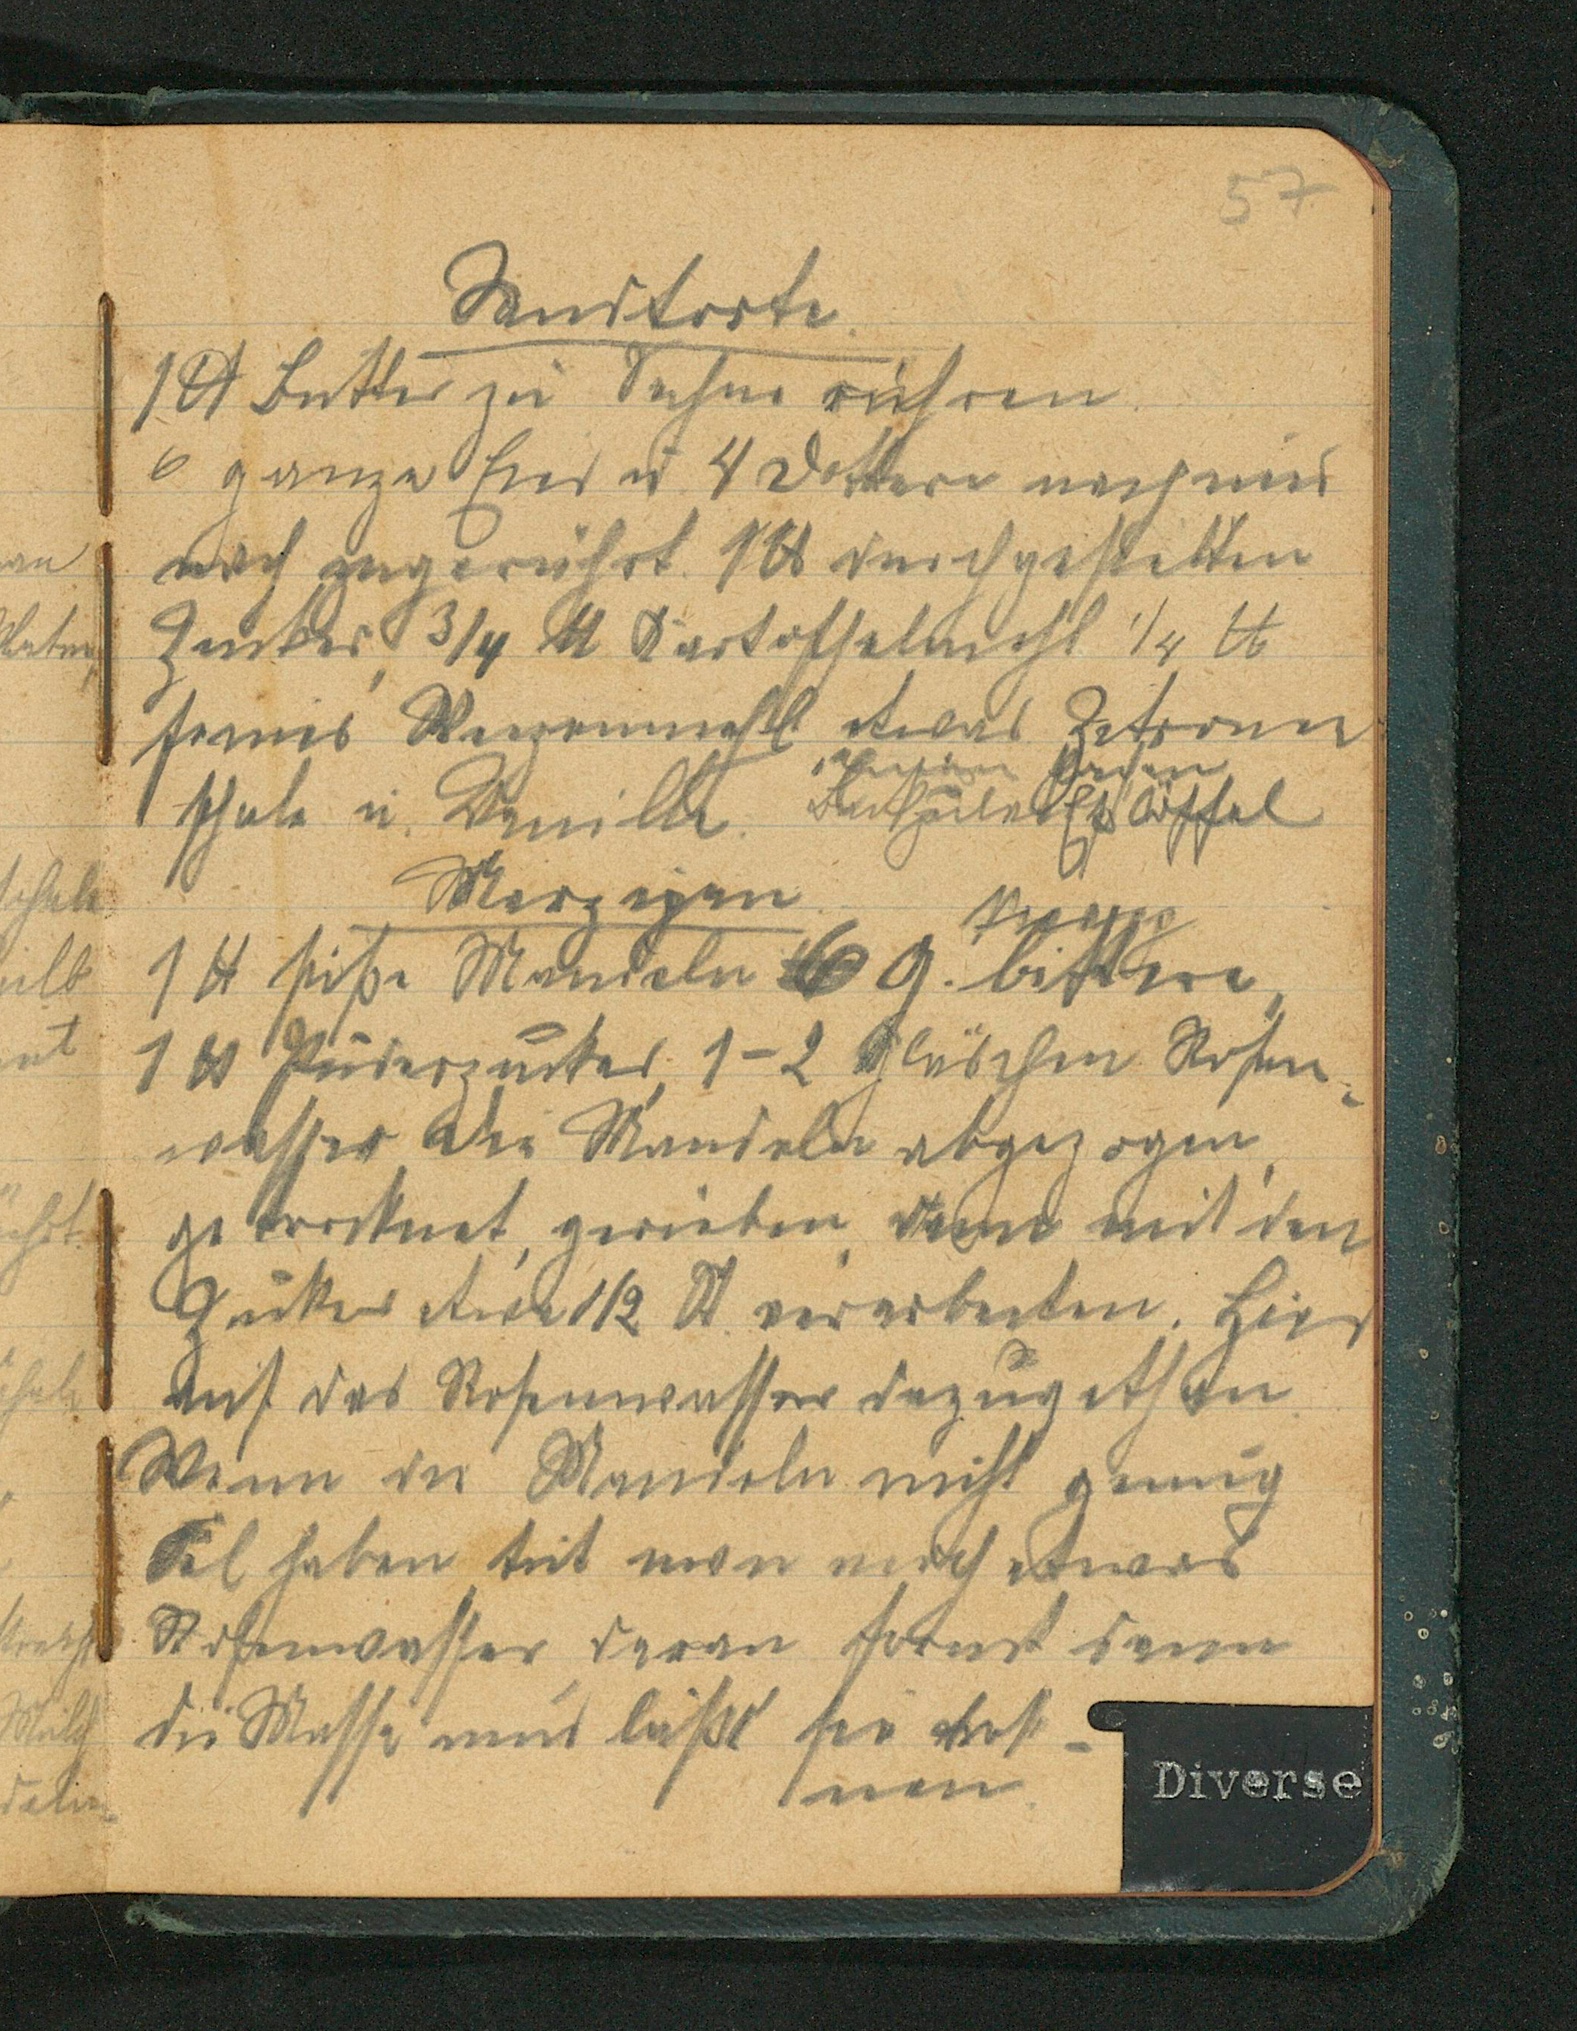 57
Sandtorte.
1 ℔ Butter zu Sahne rühren.
6 ganze Eier u 4 Dottern nach und
nach zugerührt. 1 ℔ durchgesiebten
Zucker, 3/4 ℔ Kartoffelmehl 1/4 ℔
feines Weizenmehl etwas Zitronen
schale u. Vanille. Eßlöffel
Marzipan
1 ℔ süße Mandeln 6 g. bittere,
1 ℔ Puderzucker, 1-2 Gläschen Rosen-
wasser. Die Mandeln abgezogen,
getrocknet, gerieben, dann mit den
Zucker etwa 1/2 St. verarbeiten. Hier
auf das Rosenwasser dazugethan.
Wenn die Mandeln nicht genug
Oel haben, tut man noch etwas
Rosenwasser daran formt dann
die Masse und läßt sie trok-
nen.
Diverse